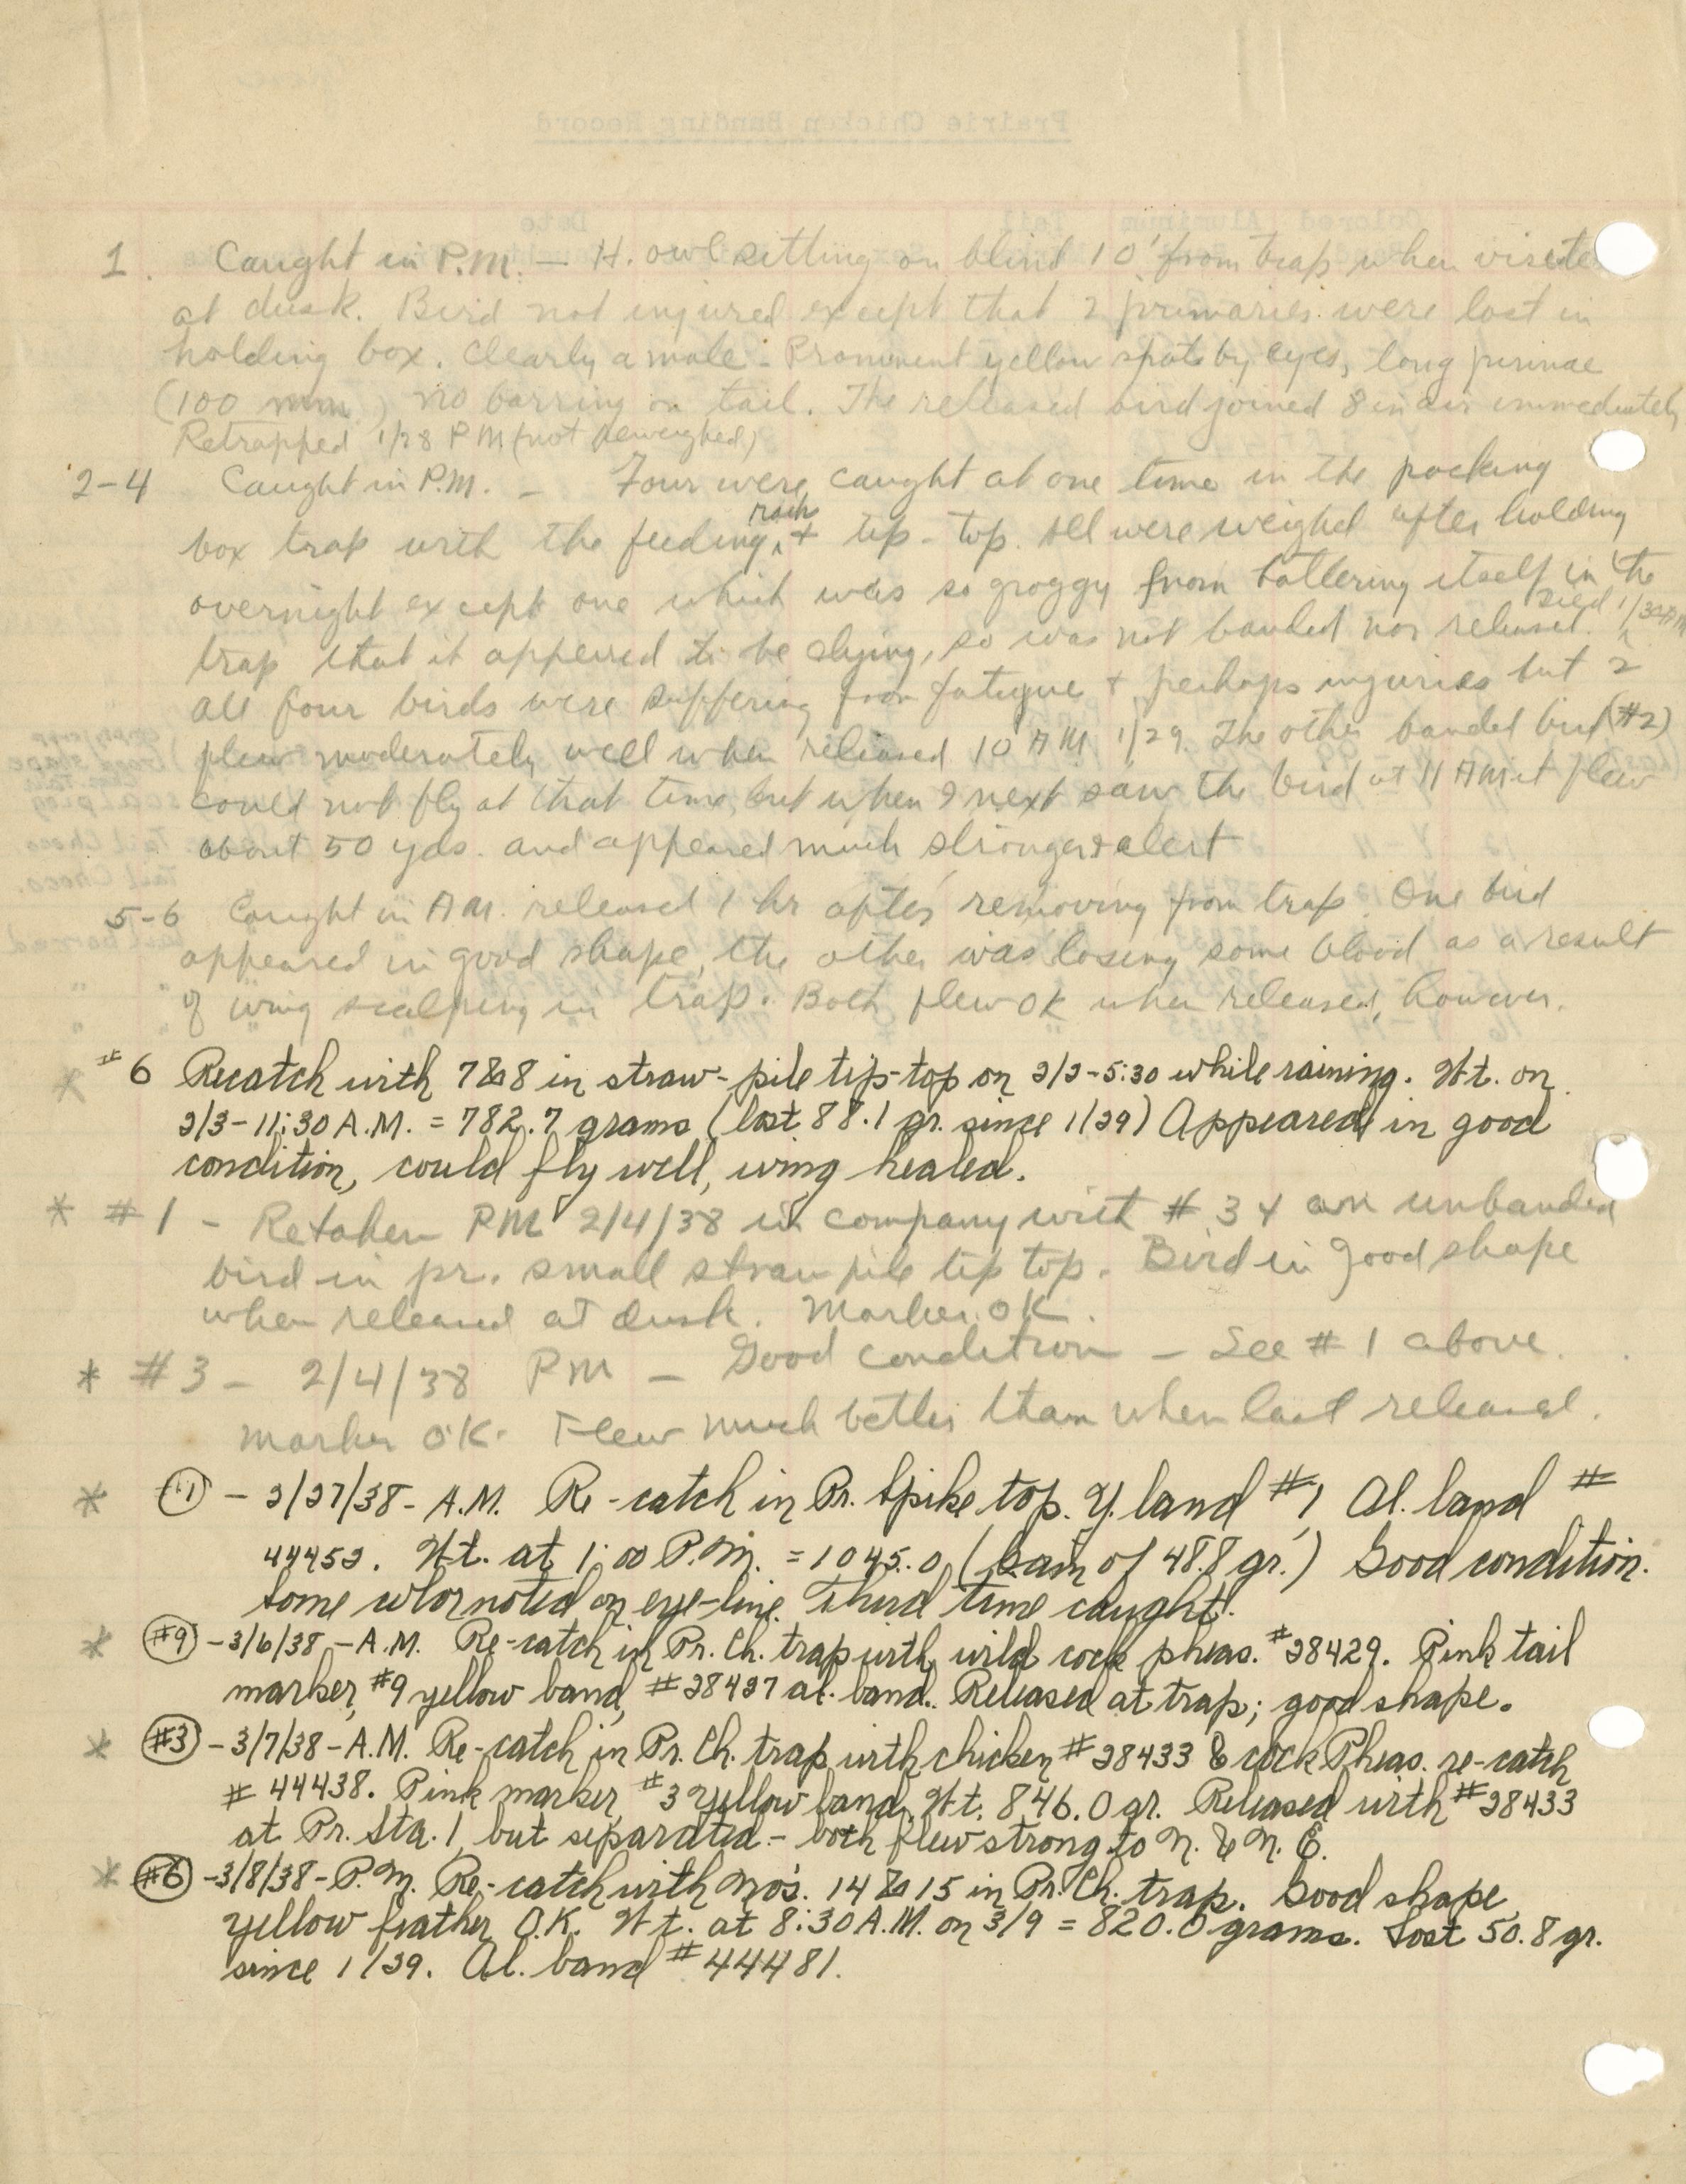 1. Caught in P.M. — H. owl sitting on blind 10' from trap when visited
at dusk. Bird not injured except that 2 primaries were lost in
holding box. Clearly a male - Prominent yellow spots by eyes, long pinnae
(100 mm) no barring on tail. The released bird joined 8 in air immediately
Retrapped 1/28 PM (not reweighed)
2-4 Caught in P.M. - Four were caught at one time in the packing
box trap with the feeding rack + tip-top. All were weighed after holding
overnight except one which was so groggy from battering itself in the
trap that it appeared to be dying, so was not banded nor released. died 1/30 AM
all four birds were suffering from fatigue + perhaps injuries but 2
flew moderately well when released 10 AM 1/29. The other banded bird (#2)
could not fly at that time, but when I next saw the bird at 11 AM it flew
about 50 yds. and appeared much stronger & alert
5-6 Caught in AM. released 1 hr after removing from trap. One bird
appeared in good shape, the other was losing some blood as a result
of wing scalping in trap. Both flew OK when released, however.
* #6 Recatch with 7&8 in straw-pile tip-top on 2/2-5:30 while raining. Wt. on
2/3-11:30 A.M. = 782.7 grams (lost 88.1 gr. since 1/29) Appeared in good
condition, could fly well, wing healed.
* #1 - Retaken PM 2/4/38 in company with #3 & an unbanded
bird in pr. small straw pile tip top. Bird in good shape
when released at dusk. Marker OK.
* #3 - 2/4/38 PM - Good condition - See #1 above.
marker OK. Flew much better than when last released.
* #1 - 2/27/38 - A.M. Re-catch in Pr. Spike top. Y. band #1, Al. band #
44452. Wt. at 1:00 P.M. = 1045.0 (Gain of 48.8 gr.) Good condition.
Some color noted on eye-line. Third time caught!
* #9 - 3/6/38 - A.M. Re-catch in Pr. Ch. trap with wild cock pheas. #28429. Pink tail
marker, #9 yellow band, #28427 al. band. Released at trap; good shape.
* #3 - 3/7/38 - A.M. Re-catch in Pr. Ch. trap with chicken #28433 & cock Pheas. re-catch
#44438. Pink marker, #3 yellow band, Wt. 846.0 gr. Released with #28433
at Pr. Sta. 1, but separated - both flew strong to N. & N. E.
* #6 - 3/8/38 - P.M. Re-catch with No's. 14 & 15 in Pr. Ch. trap. Good shape,
yellow feather O.K. Wt. at 8:30 A.M. on 3/9 = 820.0 grams. Lost 50.8 gr.
since 1/29. Al. band #44481.